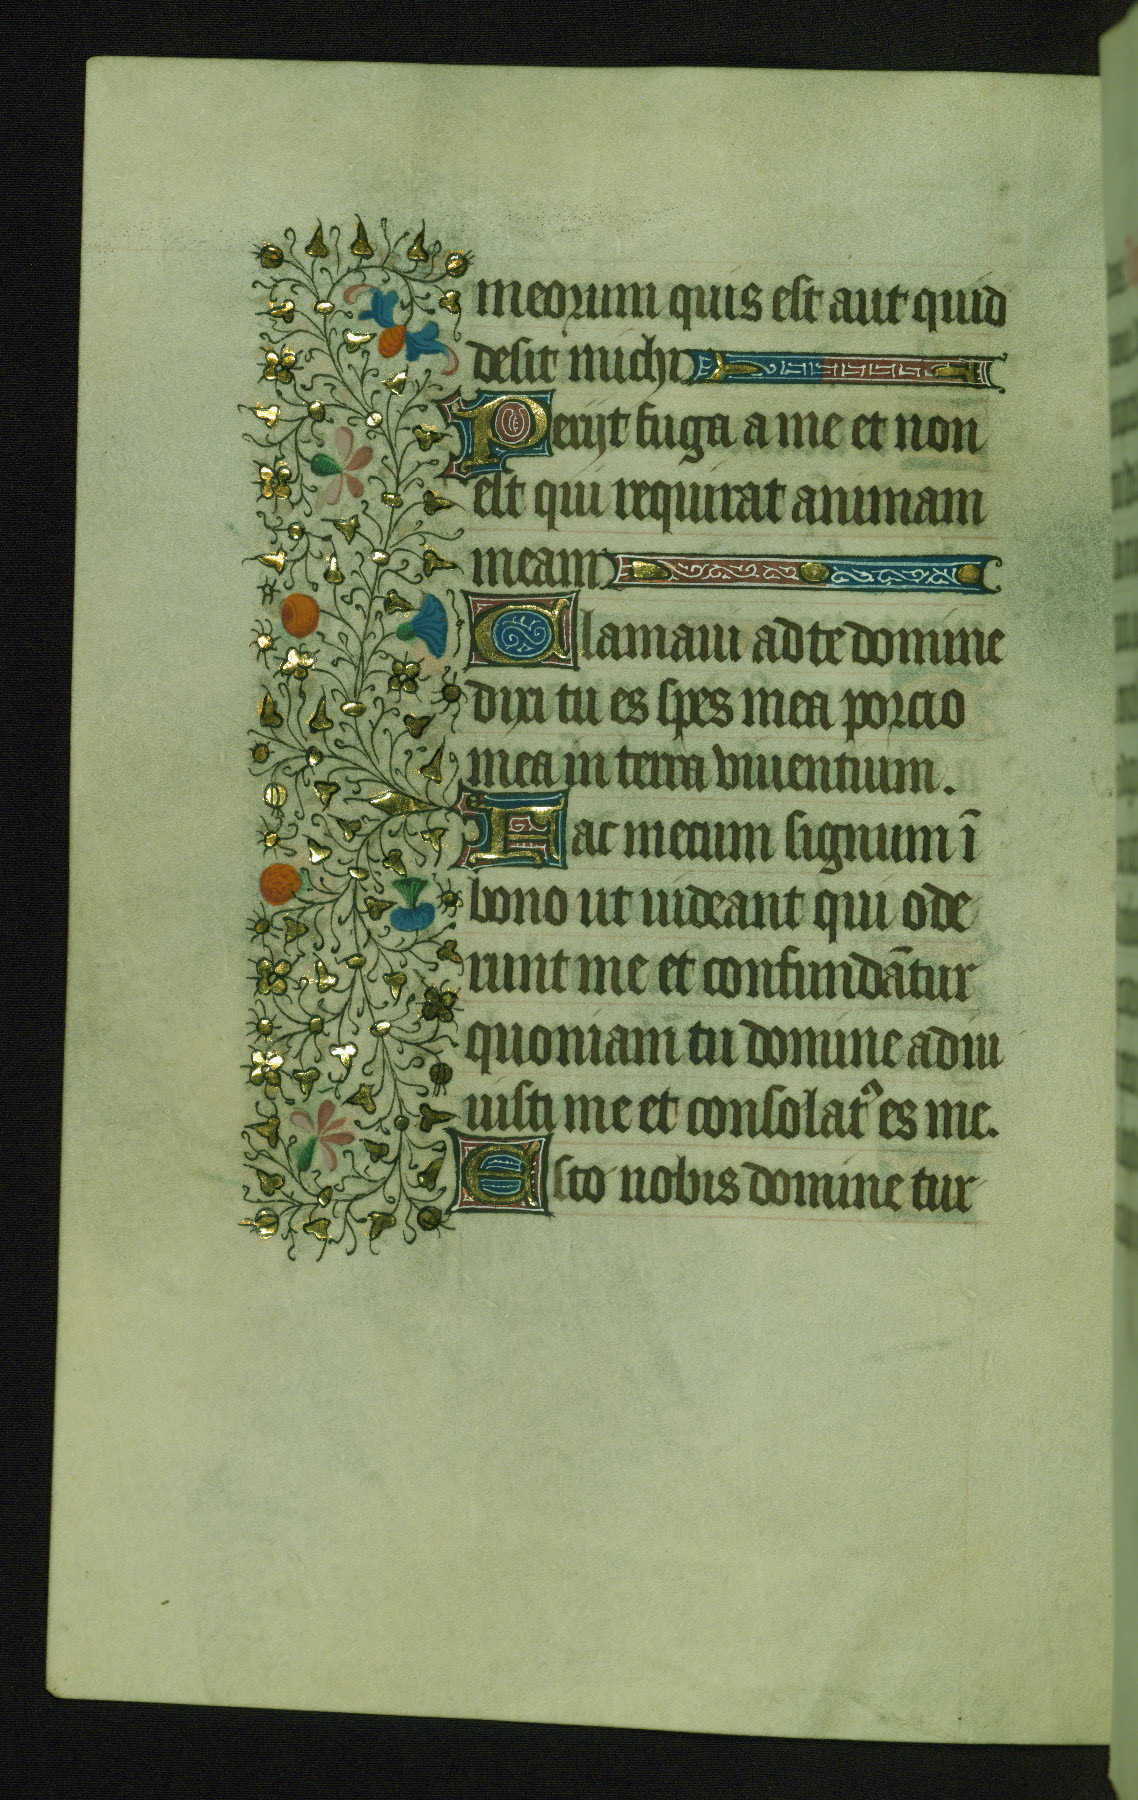 meorum quis est aut quid
desit michi
Perijt fuga a me et non
est qui requirat animam
meam
Clamaui ad te domine
dixi tu es spes mea porcio
mea in terra viuentium.
Fac mecum signum ī
bono ut uideant qui ode
runt me et confundātur
quoniam tu domine adiu
uisti me et consolatꝰ es me.
Esto nobis domine tur